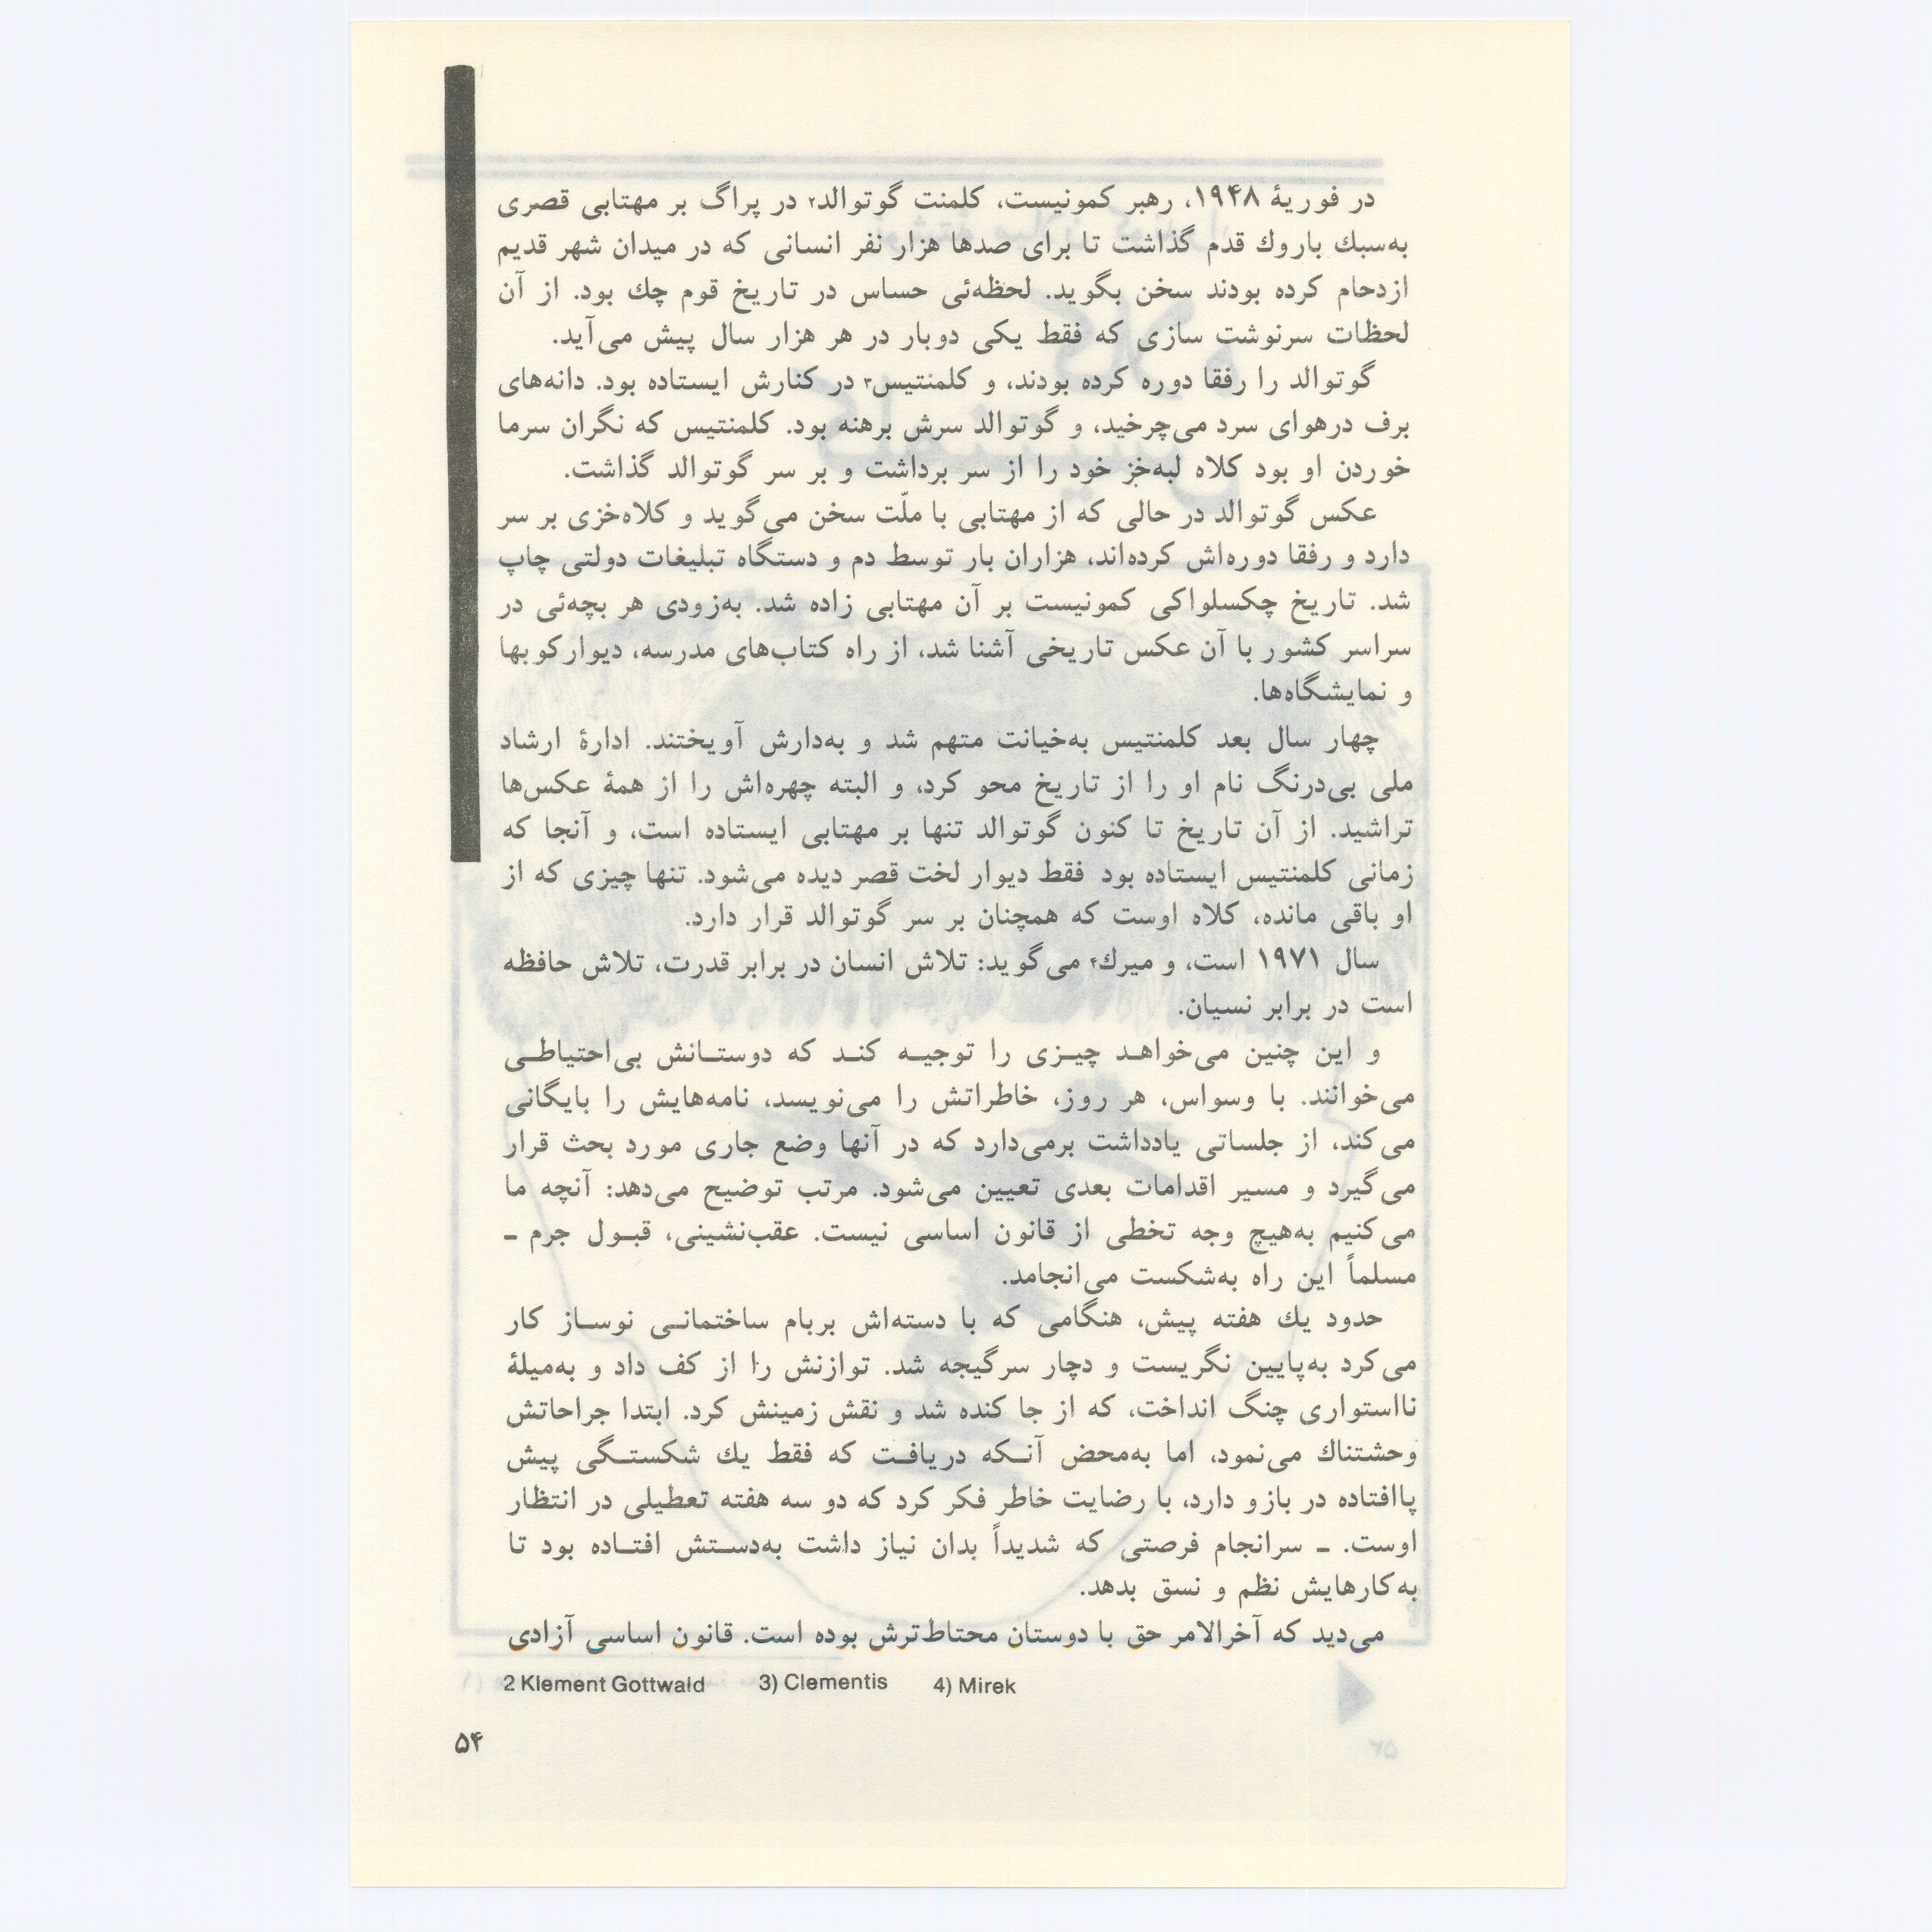 در فوریهٔ ۱۹۴۸، رهبر کمونیست، کلمنت گوتوالد۲ در پراگ بر مهتابی قصری
به‌سبك باروك قدم گذاشت تا برای صدها هزار نفر انسانی که در میدان شهر قدیم
ازدحام کرده بودند سخن بگوید. لحظه‌ئی حساس در تاریخ قوم چك بود. از آن
لحظات سرنوشت سازی که فقط یکی دوبار در هر هزار سال پیش می‌آید.
گوتوالد را رفقا دوره کرده بودند، و کلمنتیس۳ در کنارش ایستاده بود. دانه‌های
برف درهوای سرد می‌چرخید، و گوتوالد سرش برهنه بود. کلمنتیس که نگران سرما
خوردن او بود کلاه لبه‌خز خود را از سر برداشت و بر سر گوتوالد گذاشت.
عکس گوتوالد در حالی که از مهتابی با ملّت سخن می‌گوید و کلاه‌خزی بر سر
دارد و رفقا دوره‌اش کرده‌اند، هزاران بار توسط دم و دستگاه تبلیغات دولتی چاپ
شد. تاریخ چکسلواکی کمونیست بر آن مهتابی زاده شد. به‌زودی هر بچه‌ئی در
سراسر کشور با آن عکس تاریخی آشنا شد، از راه کتاب‌های مدرسه، دیوارکوبها
و نمایشگاه‌ها.
چهار سال بعد کلمنتیس به‌خیانت متهم شد و به‌دارش آویختند. ادارهٔ ارشاد
ملی بی‌درنگ نام او را از تاریخ محو کرد، و البته چهره‌اش را از همهٔ عکس‌ها
تراشید. از آن تاریخ تا کنون گوتوالد تنها بر مهتابی ایستاده است، و آنجا که
زمانی کلمنتیس ایستاده بود فقط دیوار لخت قصر دیده می‌شود. تنها چیزی که از
او باقی مانده، کلاه اوست که همچنان بر سر گوتوالد قرار دارد.
سال ۱۹۷۱ است، و میرك۴ می‌گوید: تلاش انسان در برابر قدرت، تلاش حافظه
است در برابر نسیان.
و این چنین می‌خواهـد چیـزی را توجیـه کنـد که دوستـانش بی‌احتیاطـی
می‌خوانند. با وسواس، هر روز، خاطراتش را می‌نویسد، نامه‌هایش را بایگانی
می‌کند، از جلساتی یادداشت برمی‌دارد که در آنها وضع جاری مورد بحث قرار
می‌گیرد و مسیر اقدامات بعدی تعیین می‌شود. مرتب توضیح می‌دهد: آنچه ما
می‌کنیم به‌هیچ وجه تخطی از قانون اساسی نیست. عقب‌نشینی، قبـول جرم ـ
مسلماً این راه به‌شکست می‌انجامد.
حدود یك هفته پیش، هنگامی که با دسته‌اش بربام ساختمانـی نوسـاز کار
می‌کرد به‌پایین نگریست و دچار سرگیجه شد. توازنش را از کف داد و به‌میلهٔ
نااستواری چنگ انداخت، که از جا کنده شد و نقش زمینش کرد. ابتدا جراحاتش
وحشتناك می‌نمود، اما به‌محض آنـکه دریافـت که فقط یك شکستـگی پیش
پاافتاده در بازو دارد، با رضایت خاطر فکر کرد که دو سه هفته تعطیلی در انتظار
اوست. ـ سرانجام فرصتی که شدیداً بدان نیاز داشت به‌دسـتش افتـاده بود تا
به‌کارهایش نظم و نسق بدهد.
می‌دید که آخرالامر حق با دوستان محتاط‌ترش بوده است. قانون اساسی آزادی
2 Klement Gottwald 3) Clementis 4) Mirek
۵۴